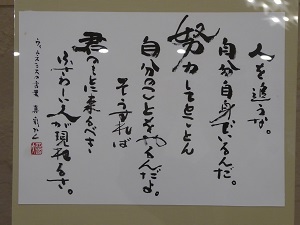 人を追うな。
自分自身でいるんだ。
努力してとことん
自分のことをやるんだよ。
そうすれば
君のもとに来るべき
ふさわしい人が現れるさ。
ウィル・スミスの言葉